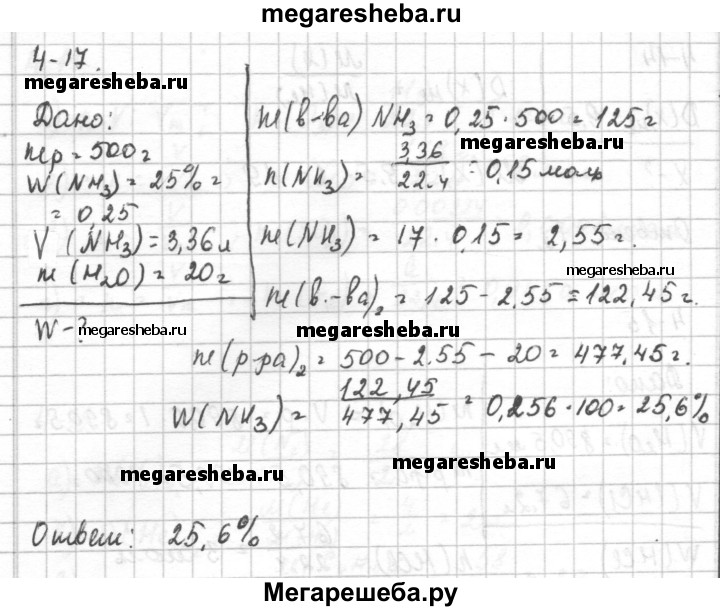 megaresheba.ru
4-17.
megaresheba.ru
Дано:
mр = 500 г
W(NH₃) = 25% =
= 0,25
V (NH₃) = 3,36 л
m (H₂O) = 20 г
W - ?
megaresheba.ru
m(в-ва) NH₃ = 0,25 · 500 = 125 г
n(NH₃) = 3,36 / 22.4 = 0,15 моль
m(NH₃) = 17 · 0,15 = 2,55 г.
megaresheba.ru
m(в.-ва)₂ = 125 - 2,55 = 122,45 г.
megaresheba.ru
m(р-ра)₂ = 500 - 2.55 - 20 = 477,45 г.
W(NH₃) = 122,45 / 477,45 = 0,256 · 100 = 25,6%
megaresheba.ru
megaresheba.ru
Ответ: 25,6%
Мегарешеба.ру